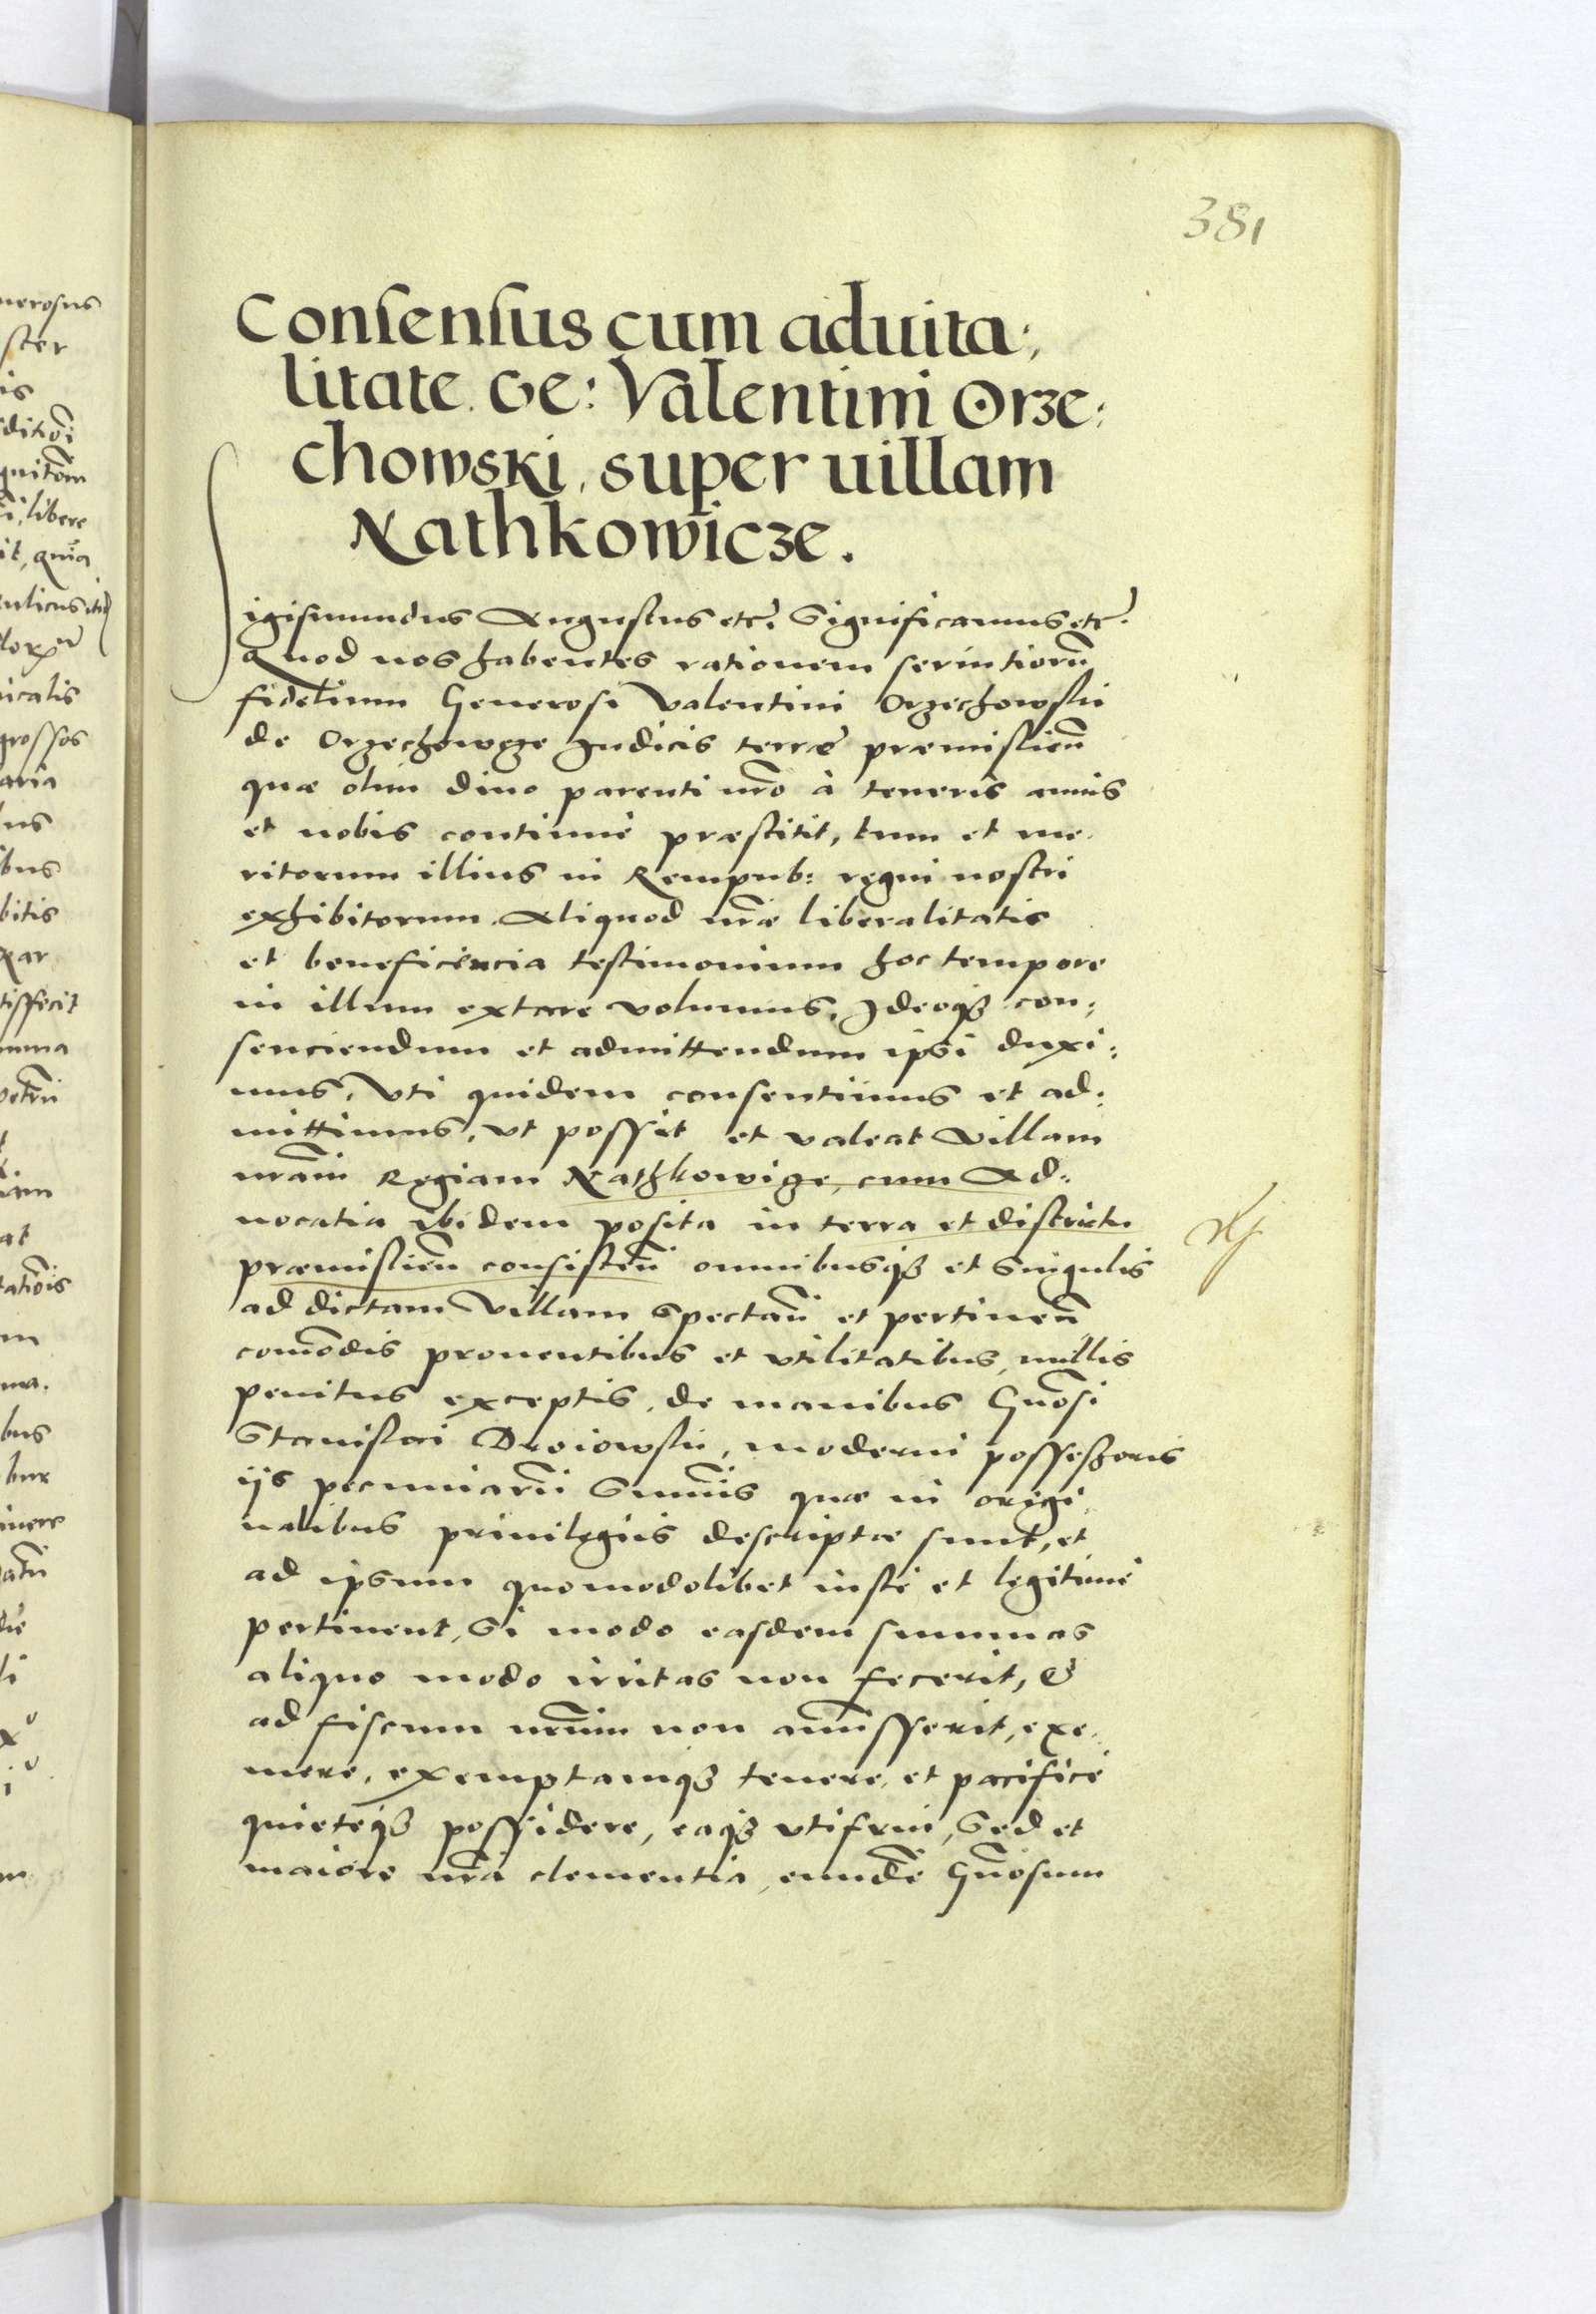 381
Consensus cum aduita:
litate. Ge: Valentini Orze:
chowski, super uillam
Nathkowicze.
Sigismundus Augustus etc. Significamus etc.
Quod nos habentes rationem seruitiorũ
fidelium Generosi Valentini Orzechowskii
de Orzechowcze Iudicis terræ præmislieñ
quæ olim diuo parenti nr̃o à teneris annis
et nobis continuè præstitit, tum et me.
ritorum illius in Rempub: regni nostri
exhibitorum. Aliquod nr̃æ liberalitatis
et beneficencia testimonium hoc tempore
in illum extare volumus, Ideoqȝ con:
senciendum et admittendum ipsi duxi:
mus, Vti quidem consentimus et ad:
mittimus, vt possit et valeat Villam
nr̃am Regiam Nathkowicze, cum Ad:
uocatia ibidem posita in terra et districtu
præmislieñ consisteñ omnibusqȝ et singulis
ad dictam Villam spectañ et pertineñ
com̃odis prouentibus et vtilitatibus, nullis
penitus exceptis, de manibus Gñosi
Stanislai Droiowskii, moderni possessoris
ijs pecuniarũ sum̃is quæ in origi
nalibus priuilegiis descriptæ sunt, et
ad ipsum quomodolibet iustè et legitimè
pertinent, Si modo easdem summas
aliquo modo irritas non fecerit, &
ad fiscum nr̃um non amisserit, exe.
mere, exemptamqȝ tenere, et pacificè
quieteqȝ possidere, eaqȝ vtifrui, Sed et
maiore nr̃a clementia, eundẽ Gñosum
nerosus
ster
is
libere
it, quia
icalis
grossos
aria
us
ibus
bitis
tisfecit
am
at
bus